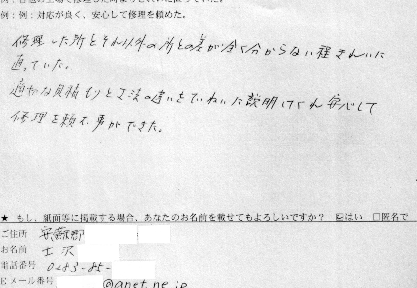 例：例：対応が良く、安心して修理を頼めた。
修理した所とそれ以外の所との差が全く分からない程きれいに
直っていた。
適切な見積もりと工法の違いをていねいに説明してくれ安心して
修理を頼む事ができた。
★ もし、紙面等に掲載する場合、あなたのお名前を載せてもよろしいですか？ ☑はい □匿名で
ご住所
お名前
電話番号 0283-85-
Eメール番号 @anet.ne.jp